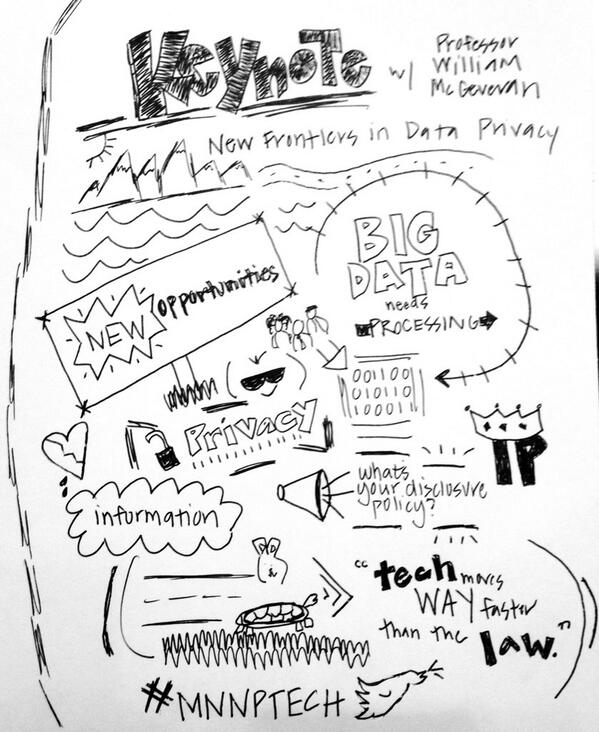 Keynote w/ Professor
William
McGeveran
New Frontiers in Data Privacy
BIG
DATA
needs
PROCESSING
NEW opportunities
001100
010110
100011
Privacy
IP
what's
your disclosure
policy?
information
"tech moves
WAY faster
than the law."
#MNNPTECH